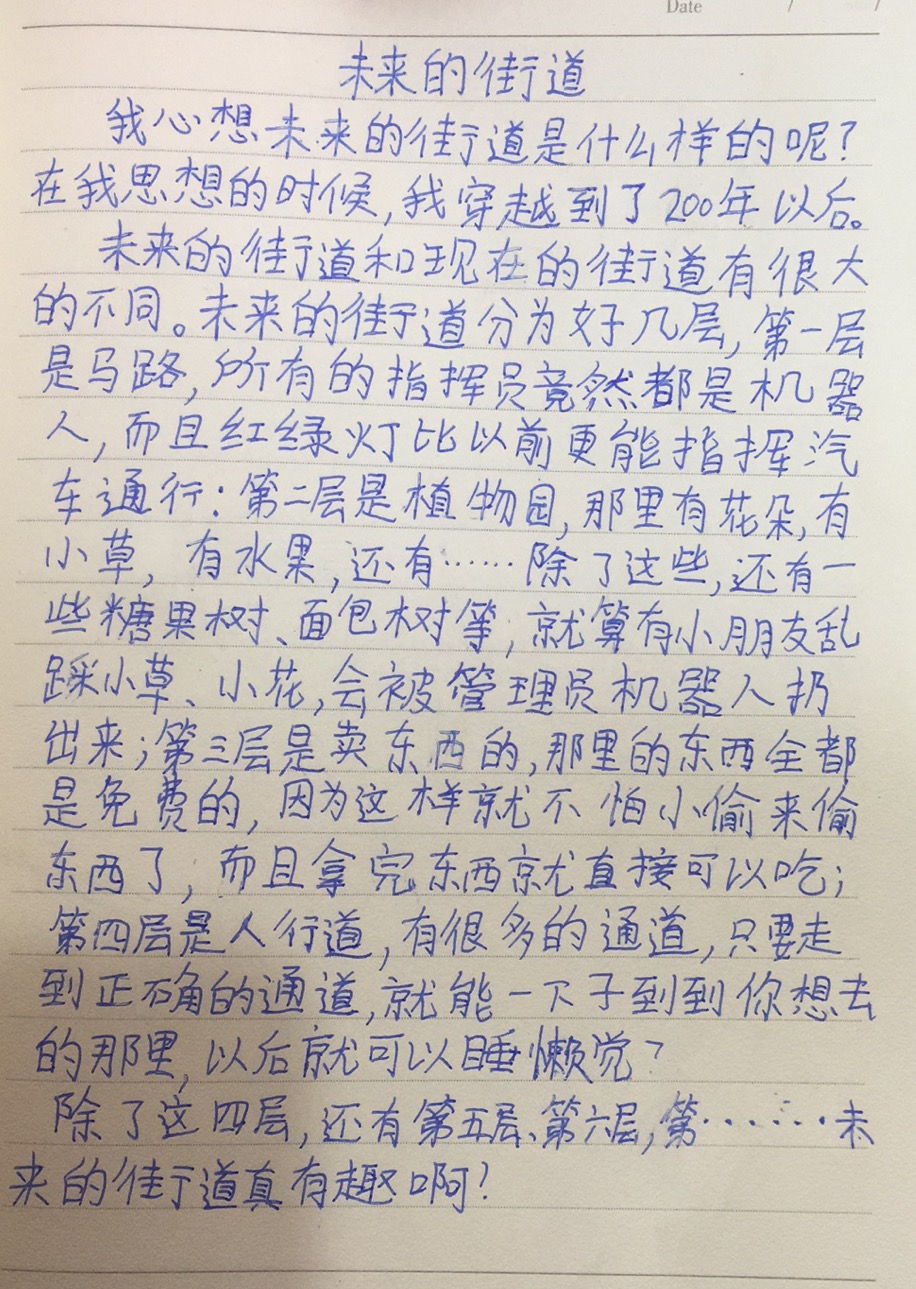 Date / /
未来的街道
我心想未来的街道是什么样的呢?
在我思想的时候,我穿越到了200年以后。
未来的街道和现在的街道有很大
的不同。未来的街道分为好几层,第一层
是马路,所有的指挥员竟然都是机器
人,而且红绿灯比以前更能指挥汽
车通行:第二层是植物园,那里有花朵,有
小草,有水果,还有……除了这些,还有一
些糖果树、面包树等,就算有小朋友乱
踩小草、小花,会被管理员机器人扔
出来;第三层是卖东西的,那里的东西全都
是免费的,因为这样就不怕小偷来偷
东西了,而且拿完东西就直接可以吃;
第四层是人行道,有很多的通道,只要走
到正确的通道,就能一下子到到你想去
的那里,以后就可以睡懒觉?
除了这四层,还有第五层、第六层,第······未
来的街道真有趣啊!